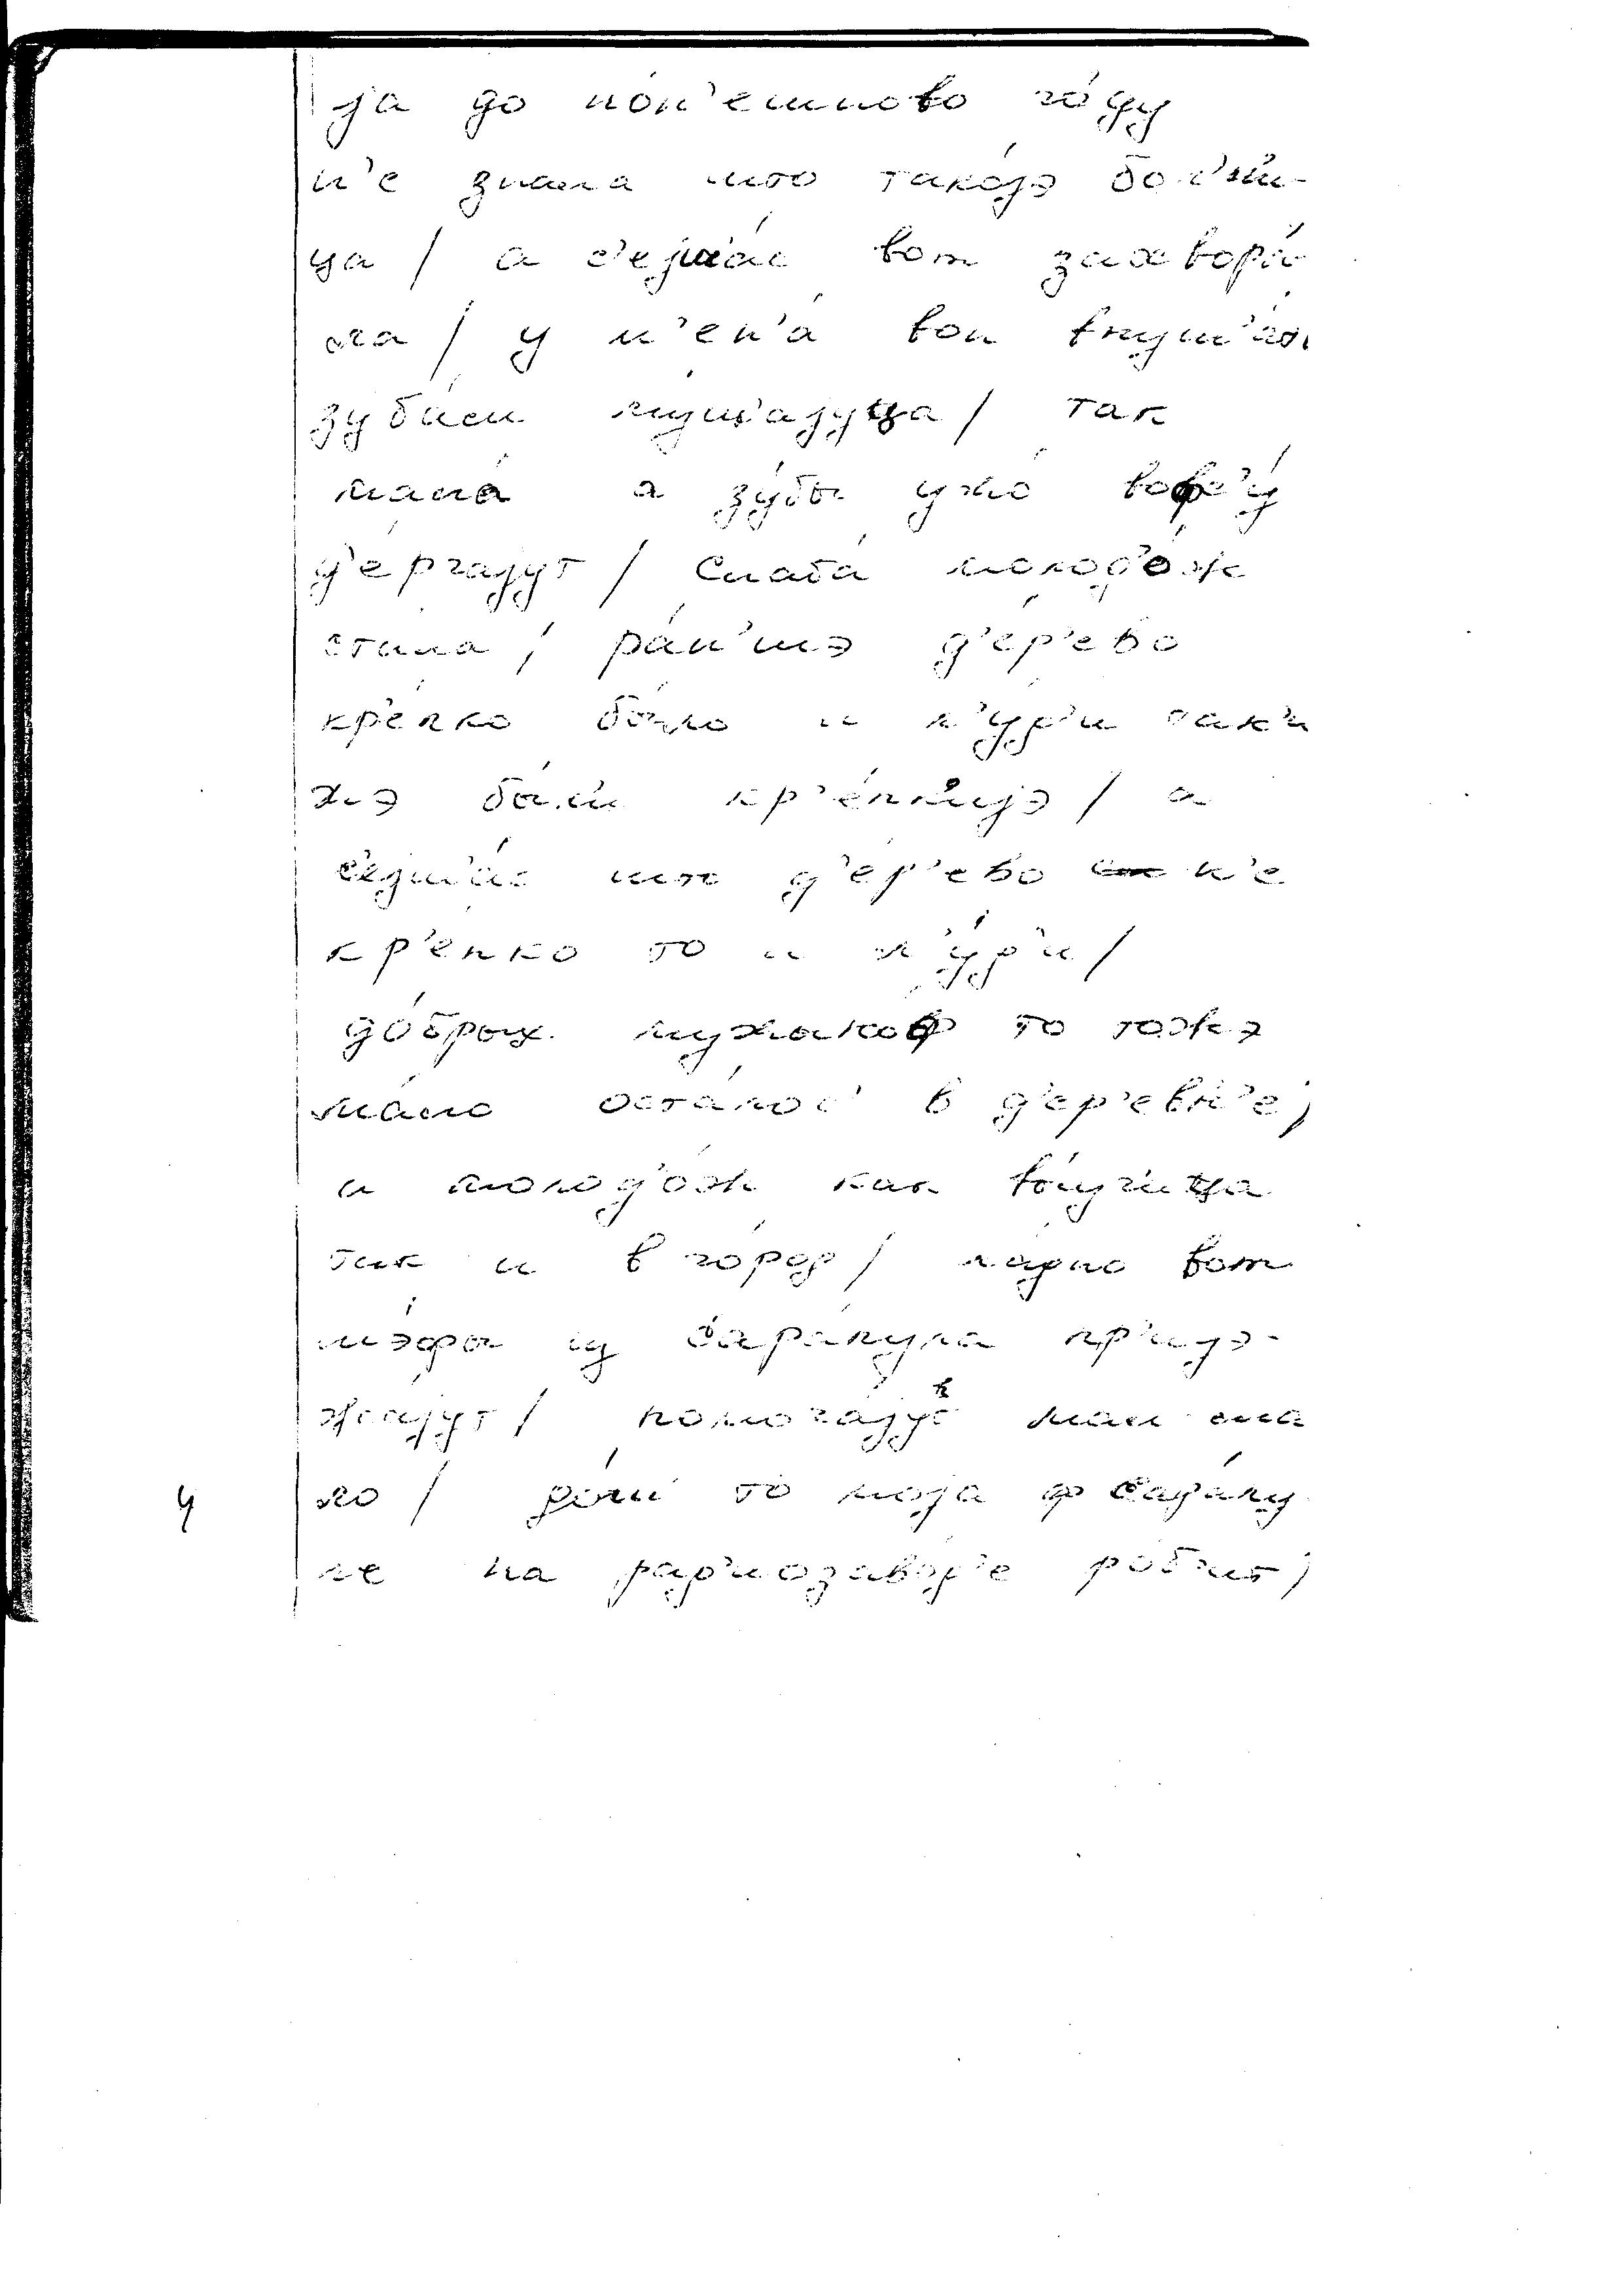 ја до нон'ешново го́ду
н'е знала што тако́јэ бол'н'и-
ца / а с'ејч'а́с вот захвора́-
ла / у м'ен'а́ вон внуш'а́та
зуба́м му́чајуца / так
мала́ а зу́бы ужо́ вофс'у́
д'е́ргајут / Слаба́ молод'о́ж
ста́ла / ра́н'шэ д'ер'ево
кр'е́пко бы́ло и л'у́д'и так'и
жэ бы́л'и кр'е́пкијэ / а
с'ејч'а́с што д'ер'ево н'е
кр'е́пко то и л'у́д'и /
до́брых мужыкоф то то́жэ
ма́ло оста́лос' в д'ер'е́вн'е /
а молод'о́ж как вы́учица
так и в го́род / ла́дно вот
шэфы из Сара́пула пр'ијэ-
жа́јут / помога́јут нам ма
ло / до́ч' то моја́ ф Сара́пу
ле на рад'иозаво́д'е ро́бит /
4